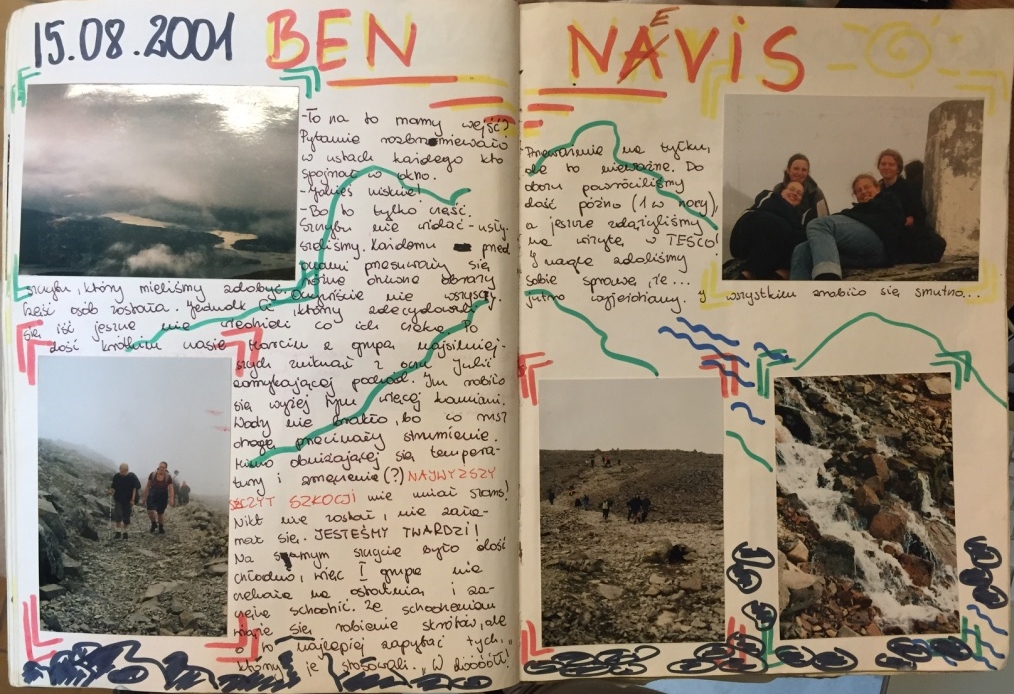 15.08.2001 BEN NAEVIS
-To na to mamy wejść?
Pytanie rozbrzmiewało
w ustach każdego kto
spojrzał w okno.
-Jakieś niskie!
-Bo to tylko część.
Szczytu nie widać - usły-
szeliśmy. Każdemu przed
oczami przesuwały się
różne dziwne obrazy
szczytu, który mieliśmy zdobyć. Oczywiście nie wszyscy.
Część osób została. Jednak Ci, którzy zdecydowali
się iść jeszcze nie wiedzieli co ich czeka. Po
dość krótkim czasie
szych zniknął z oczu Julii
zamykającej pochód. Im robiło
się wyżej tym więcej kamieni.
Wody nie brakło, bo co rusz
drogę przecinały strumienie.
Mimo obniżającej się tempera-
tury i zmęczenia (?) NAJWYŻSZY
SZCZYT SZKOCJI nie miał szans!
Nikt nie został, nie zała-
mał się. JESTEŚMY TWARDZI!
Na samym szczycie było dość
chłodno, więc I grupa nie
czekała na ostatnią i za-
częła schodzić. Ze schodzeniem
wiąże się robienie skrótów, ale
o to najlepiej zapytać tych,
którzy je stosowali. "W dóóół!"
na tyłku,
ale to nieważne. Do
obozu powróciliśmy
dość późno (1 w nocy),
a jeszcze zdążyliśmy
na wizytę w TESCO!
I nagle zdaliśmy
sobie sprawę, że...
jutro wyjeżdżamy. I wszystkim zrobiło się smutno...